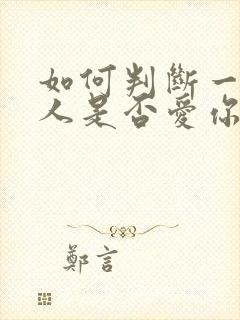 如何判斷一
人是否愛你
鄭言